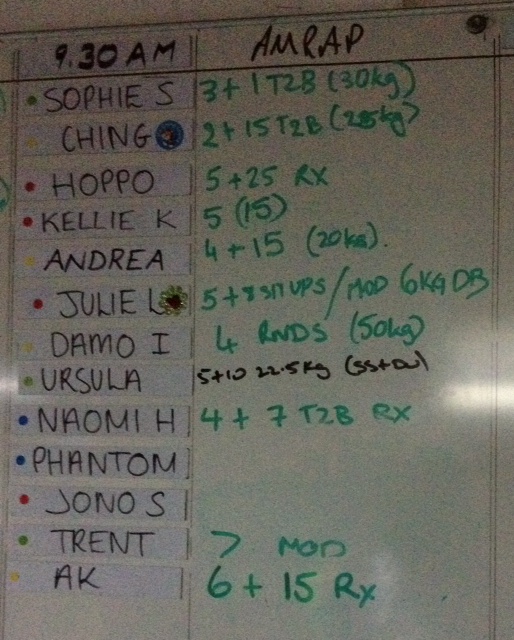 9.30 AM AMRAP
SOPHIE S 3 + 1 T2B (30kg)
CHING 2 + 15 T2B (kg)
HOPPO 5 + 25 RX
KELLIE K 5 (15)
ANDREA 4 + 15 (20kg).
JULIE L 5 + 8 SIT UPS / MOD 6KG DB
DAMO I 4 RNDS (50kg)
URSULA 5+10 22.5kg (SS+DU)
NAOMI H 4 + 7 T2B RX
PHANTOM
JONO S
TRENT 7 MOD
AK 6 + 15 Rx